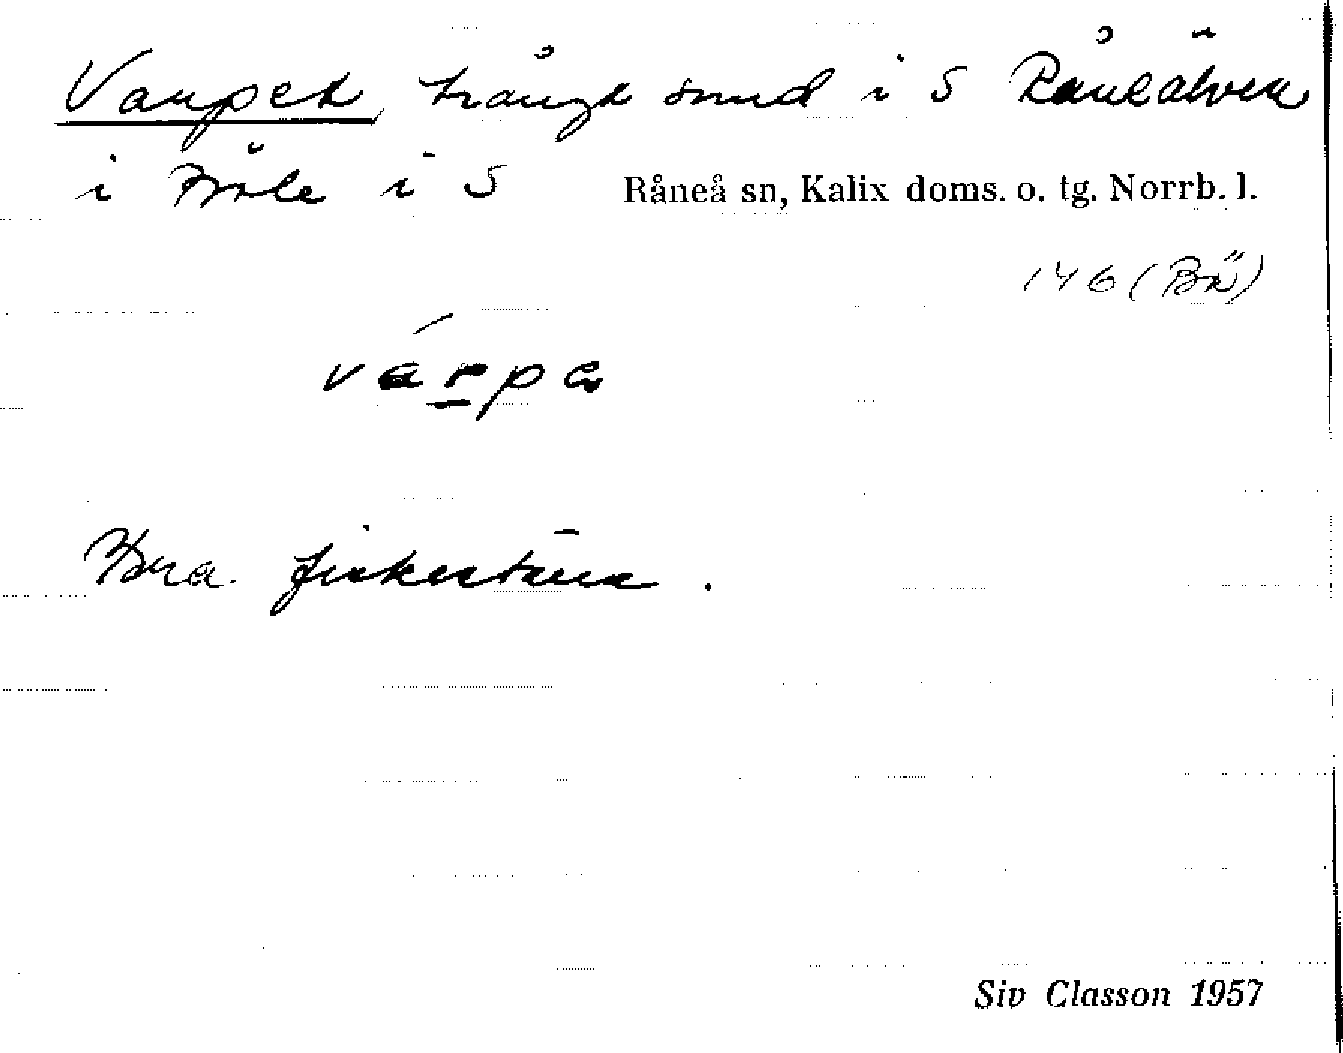 Varpet, trångt sund i S Råneälven
i Böle i S Råneå sn, Kalix doms. o. tg. Norrb. l.
146 (Bä)
várpa
Bra fiskeställe.
Siv Classon 1957